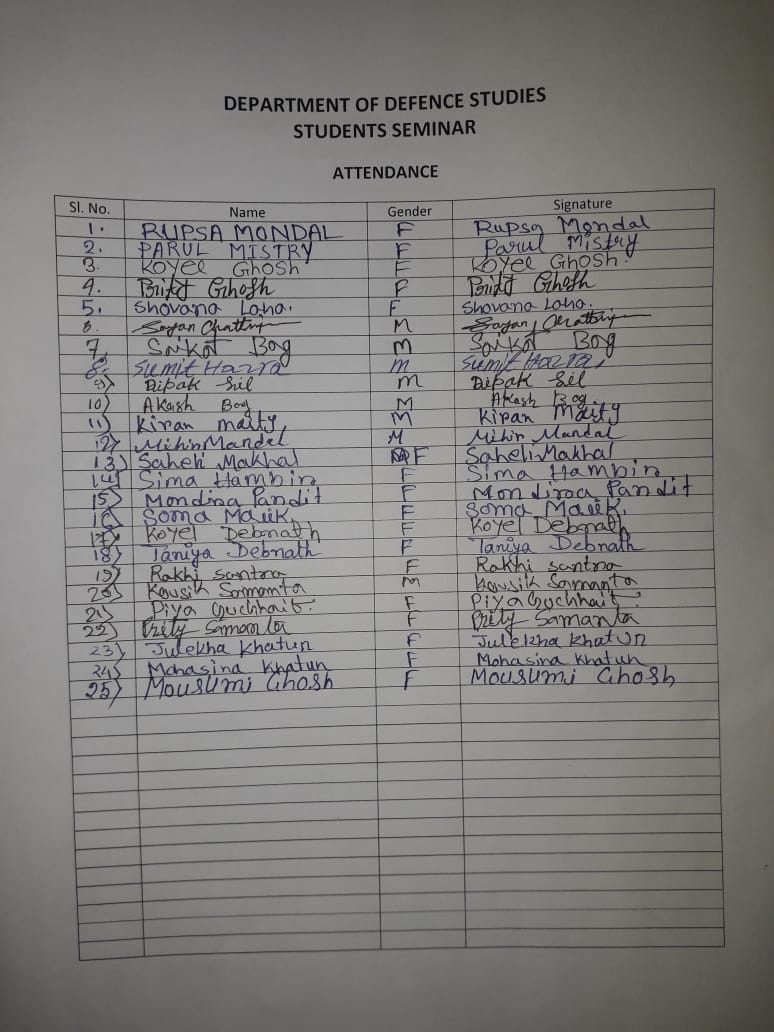 DEPARTMENT OF DEFENCE STUDIES
STUDENTS SEMINAR
ATTENDANCE
Sl. No. Name Gender Signature
1. RUPSA MONDAL F Rupsa Mondal
2. PARUL MISTRY F Parul Mistry
3. Koyel Ghosh F Koyel Ghosh.
4. Ghosh F Ghosh
5. Shovana Laha. F Shovana Laha.
6. Sayan M Sayan
7. Saikat Bag M Saikat Bag
8. Sumit Hazra M Sumit Hazra
9) Dipak Sil M Dipak Sil
10) Akash Bag M Akash Bag.
11) Kiran maity M Kiran Maity
12) Mihir Mandal M Mihir Mandal
13) Saheli Makhal F Saheli Makhal
14) Sima Hambir F Sima Hambir
15) Mondira Pandit F Mondira Pandit
16) Soma Malik. F Soma Malik.
17) Koyel Debnath F Koyel Debnath
18) Taniya Debnath F Taniya Debnath
19) Rakhi santra F Rakhi santra
20) Kousik Samanta M Kousik Samanta
21) Piya Guchhait. F Piya Guchhait.
22) Prity Samanta F Prity Samanta
23) Julekha Khatun F Julekha Khatun
24) Mohasina Khatun F Mohasina Khatun
25) Mousumi Ghosh F Mousumi Ghosh